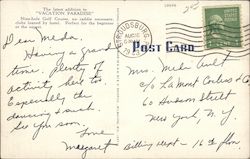 The latest addition to
"VACATION PARADISE"
Nine-hole Golf Course, no caddie necessary,
clubs loaned by hotel. Perfect for the beginner
or the expert
STROUDSBURG
AUG
POST CARD
Dear Meda,
Having a grand
time. Plenty of
activity here to
Especially the
dancing
See you soon.
Love
Margaret
Mrs. Meda Ault
c/o La Mont Corliss & Co
60 Hudson Street
New York, N.Y.
Billing dept - 16th floor